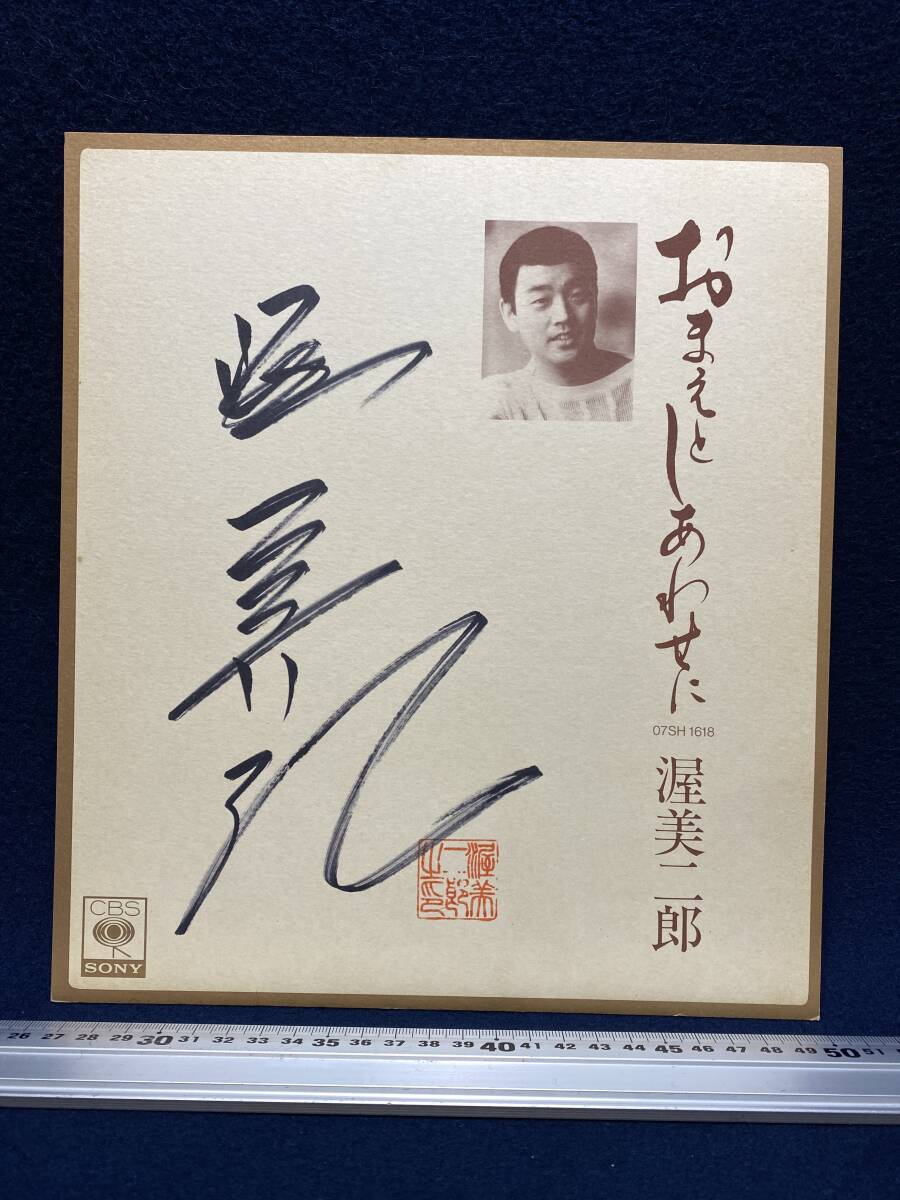 おまえとしあわせに
07SH 1618
渥美二郎
渥美二郎
渥美
二郎
之印
CBS
SONY
26 27 28 29 30 31 32 33 34 35 36 37 38 39 40 41 42 43 44 45 46 47 48 49 50 51